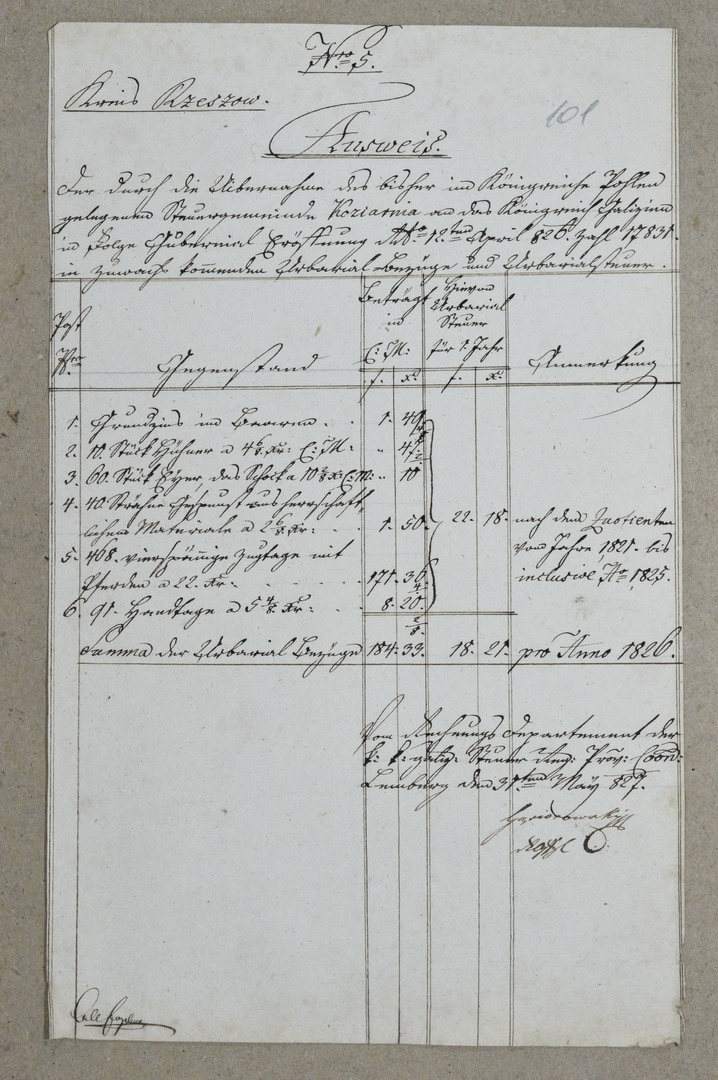 Nro 5.
Kreis Rzeszow.
101
Ausweis.
Der durch die Uibernahme des bisher im Königreiche Pohlen
gelegenen Steuergemeinde Koziarnia an das Königreich Galizien
in Folge Gubernial Eröffnung dto 12ten April 826 Zahl 17831
in Zuwachs kommenden Urbarial Bezüge und Urbarialsteuer.
Post Nro
Gegenstand
Beträgt in C: M:
f. xr.
Hievon Urbarial Steuer für 1. Jahr
f. xr.
Anmerkung
1. Grundzins im Baaren . . 1. 49
2. 10. Stück Hühner a 4 6/8 Xr: C: M: " 47
3. 60. Stück Eyer, das Schock a 10 Xr C: M: " 10
4. 40. Strähne Gespunst aus herrschaft
lichem Materiale a 2 6/8 Xr: . . 1. 50. 22. 18. nach dem Quotienten
vom Jahre 1821. bis
5. 468. vierspännige Zugtage mit
Pferden a 22. Xr. . . . . 171. 36 inclusive Ao 1825.
6. 91. Handtage a 5 4/8 Xr: . . 8. 20.
Summa der Urbarial Bezüge 184. 33. 18. 21. pro Anno 1826.
Vom Rechnungs Departement der
k: k: galiz: Steuer Reg: Prov: Coon:
Lemberg den 31ten May 827.